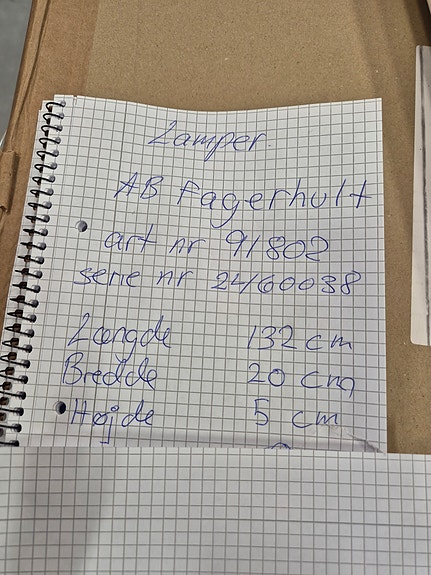 Lamper.
AB Fagerhult
art nr 91802
serie nr 24160038
Længde 132 cm
Bredde 20 cm
Højde 5 cm